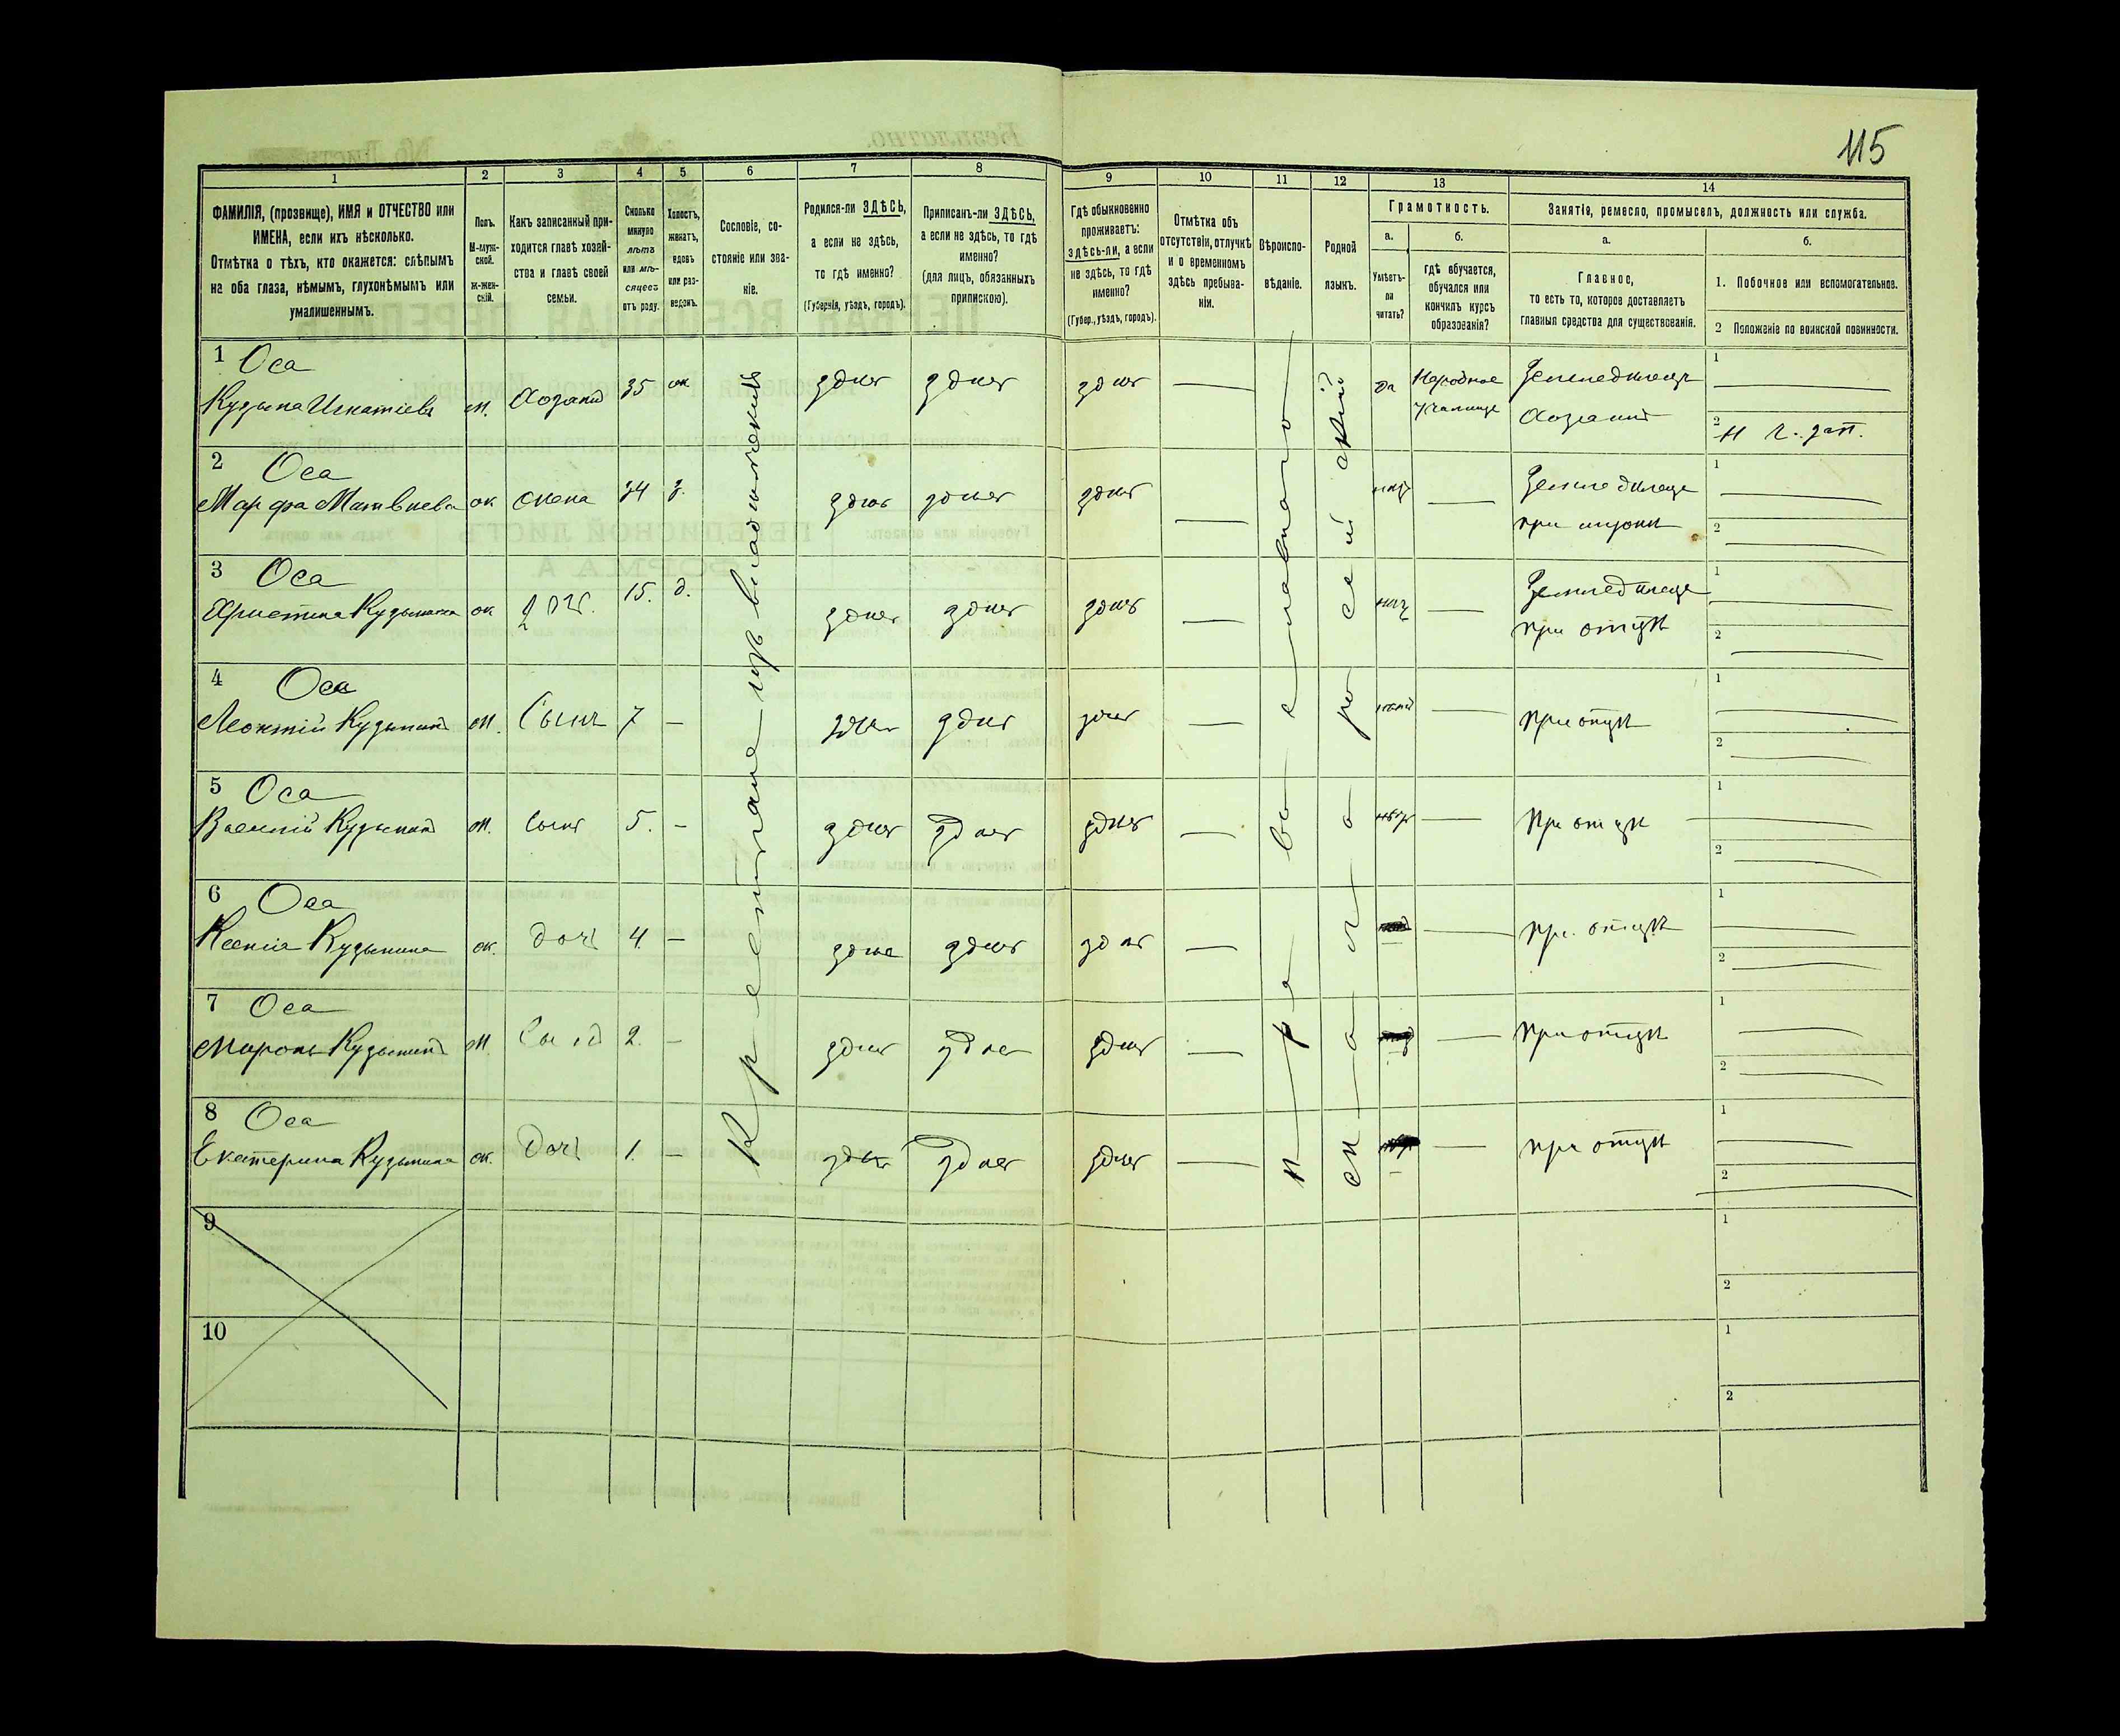 115
1
2
3
4
5
6
7
8
9
10
11
12
13
14
ФАМИЛІЯ, (прозвище), ИМЯ и ОТЧЕСТВО или
ИМЕНА, если ихъ нѣсколько.
Отмѣтка о тѣхъ, кто окажется: слѣпымъ
на оба глаза, нѣмымъ, глухонѣмымъ или
умалишеннымъ.
Полъ.
М-муж-
ской.
ж-жен-
скій.
Какъ записанный при-
ходится главѣ хозяй-
ства и главѣ своей
семьи.
Сколько
минуло
лѣтъ
или мѣ-
сяцевъ
отъ роду.
Холостъ,
женатъ,
вдовъ
или раз-
веденъ.
Сословіе, со-
стояніе или зва-
ніе.
Родился-ли ЗДѢСЬ,
а если не здѣсь,
то гдѣ именно?
(Губернія, уѣздъ, городъ).
Приписанъ-ли ЗДѢСЬ,
а если не здѣсь, то гдѣ
именно?
(для лицъ, обязанныхъ
припискою).
Гдѣ обыкновенно
проживаетъ:
здѣсь-ли, а если
не здѣсь, то гдѣ
именно?
(Губер., уѣздъ, городъ).
Отмѣтка объ
отсутствіи, отлучкѣ
и о временномъ
здѣсь пребыва-
ніи.
Вѣроиспо-
вѣданіе.
Родной
языкъ.
Грамотность.
а.
Умѣетъ-
ли
читать?
б.
гдѣ обучается,
обучался или
кончилъ курсъ
образованія?
Занятіе, ремесло, промыселъ, должность или служба.
а.
Главное,
то есть то, которое доставляетъ
главныя средства для существованія.
б.
1. Побочное или вспомогательное.
2 Положеніе по воинской повинности.
Крестьяне изъ владѣльческихъ
православное
малоросейскій
1 Оса
Кузьма Игнатіевъ м. Хозяинъ 35 ж здѣсь здѣсь здѣсь — да Народное
училище
Земледѣлецъ
Хозяинъ
1
2
2 Оса
Марфа Матвѣева ж жена 34 з. здѣсь здѣсь здѣсь — —
Земледѣлец
при мужѣ
1
2
3 Оса
Христина Кузьмина ж доч. 15. д. здѣсь здѣсь здѣсь — —
Земледѣлец
при отцѣ
1
2
4 Оса
Леонтій Кузьминъ м. Сынъ 7 — здѣсь здѣсь здѣсь — — при отцѣ
1
2
5 Оса
Василій Кузьминъ м. сынъ 5. — здѣсь здѣсь здѣсь — — при отцѣ
1
2
6 Оса
Ксенія Кузьмина ж. дочь 4 — здѣсь здѣсь здѣсь — — при отцѣ
1
2
7 Оса
Миронъ Кузьминъ м. Сынъ 2. — здѣсь здѣсь здѣсь — — при отцѣ
1
2
8 Оса
Екатерина Кузьмина ж. Дочь 1. — здѣсь здѣсь здѣсь — — при отцѣ
1
2
9
1
2
10
1
2